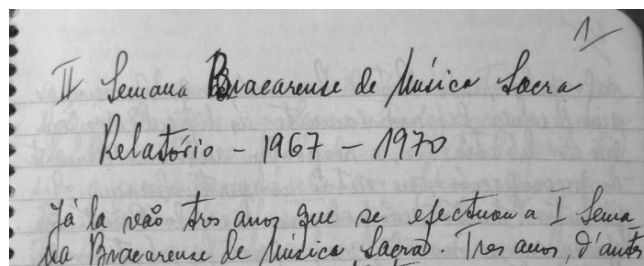 1
II Semana Bracarense de Música Sacra
Relatório - 1967 - 1970
Já la vão tres anos que se efectuou a I Sema
na Bracarense de Música Sacra. Tres anos, d'